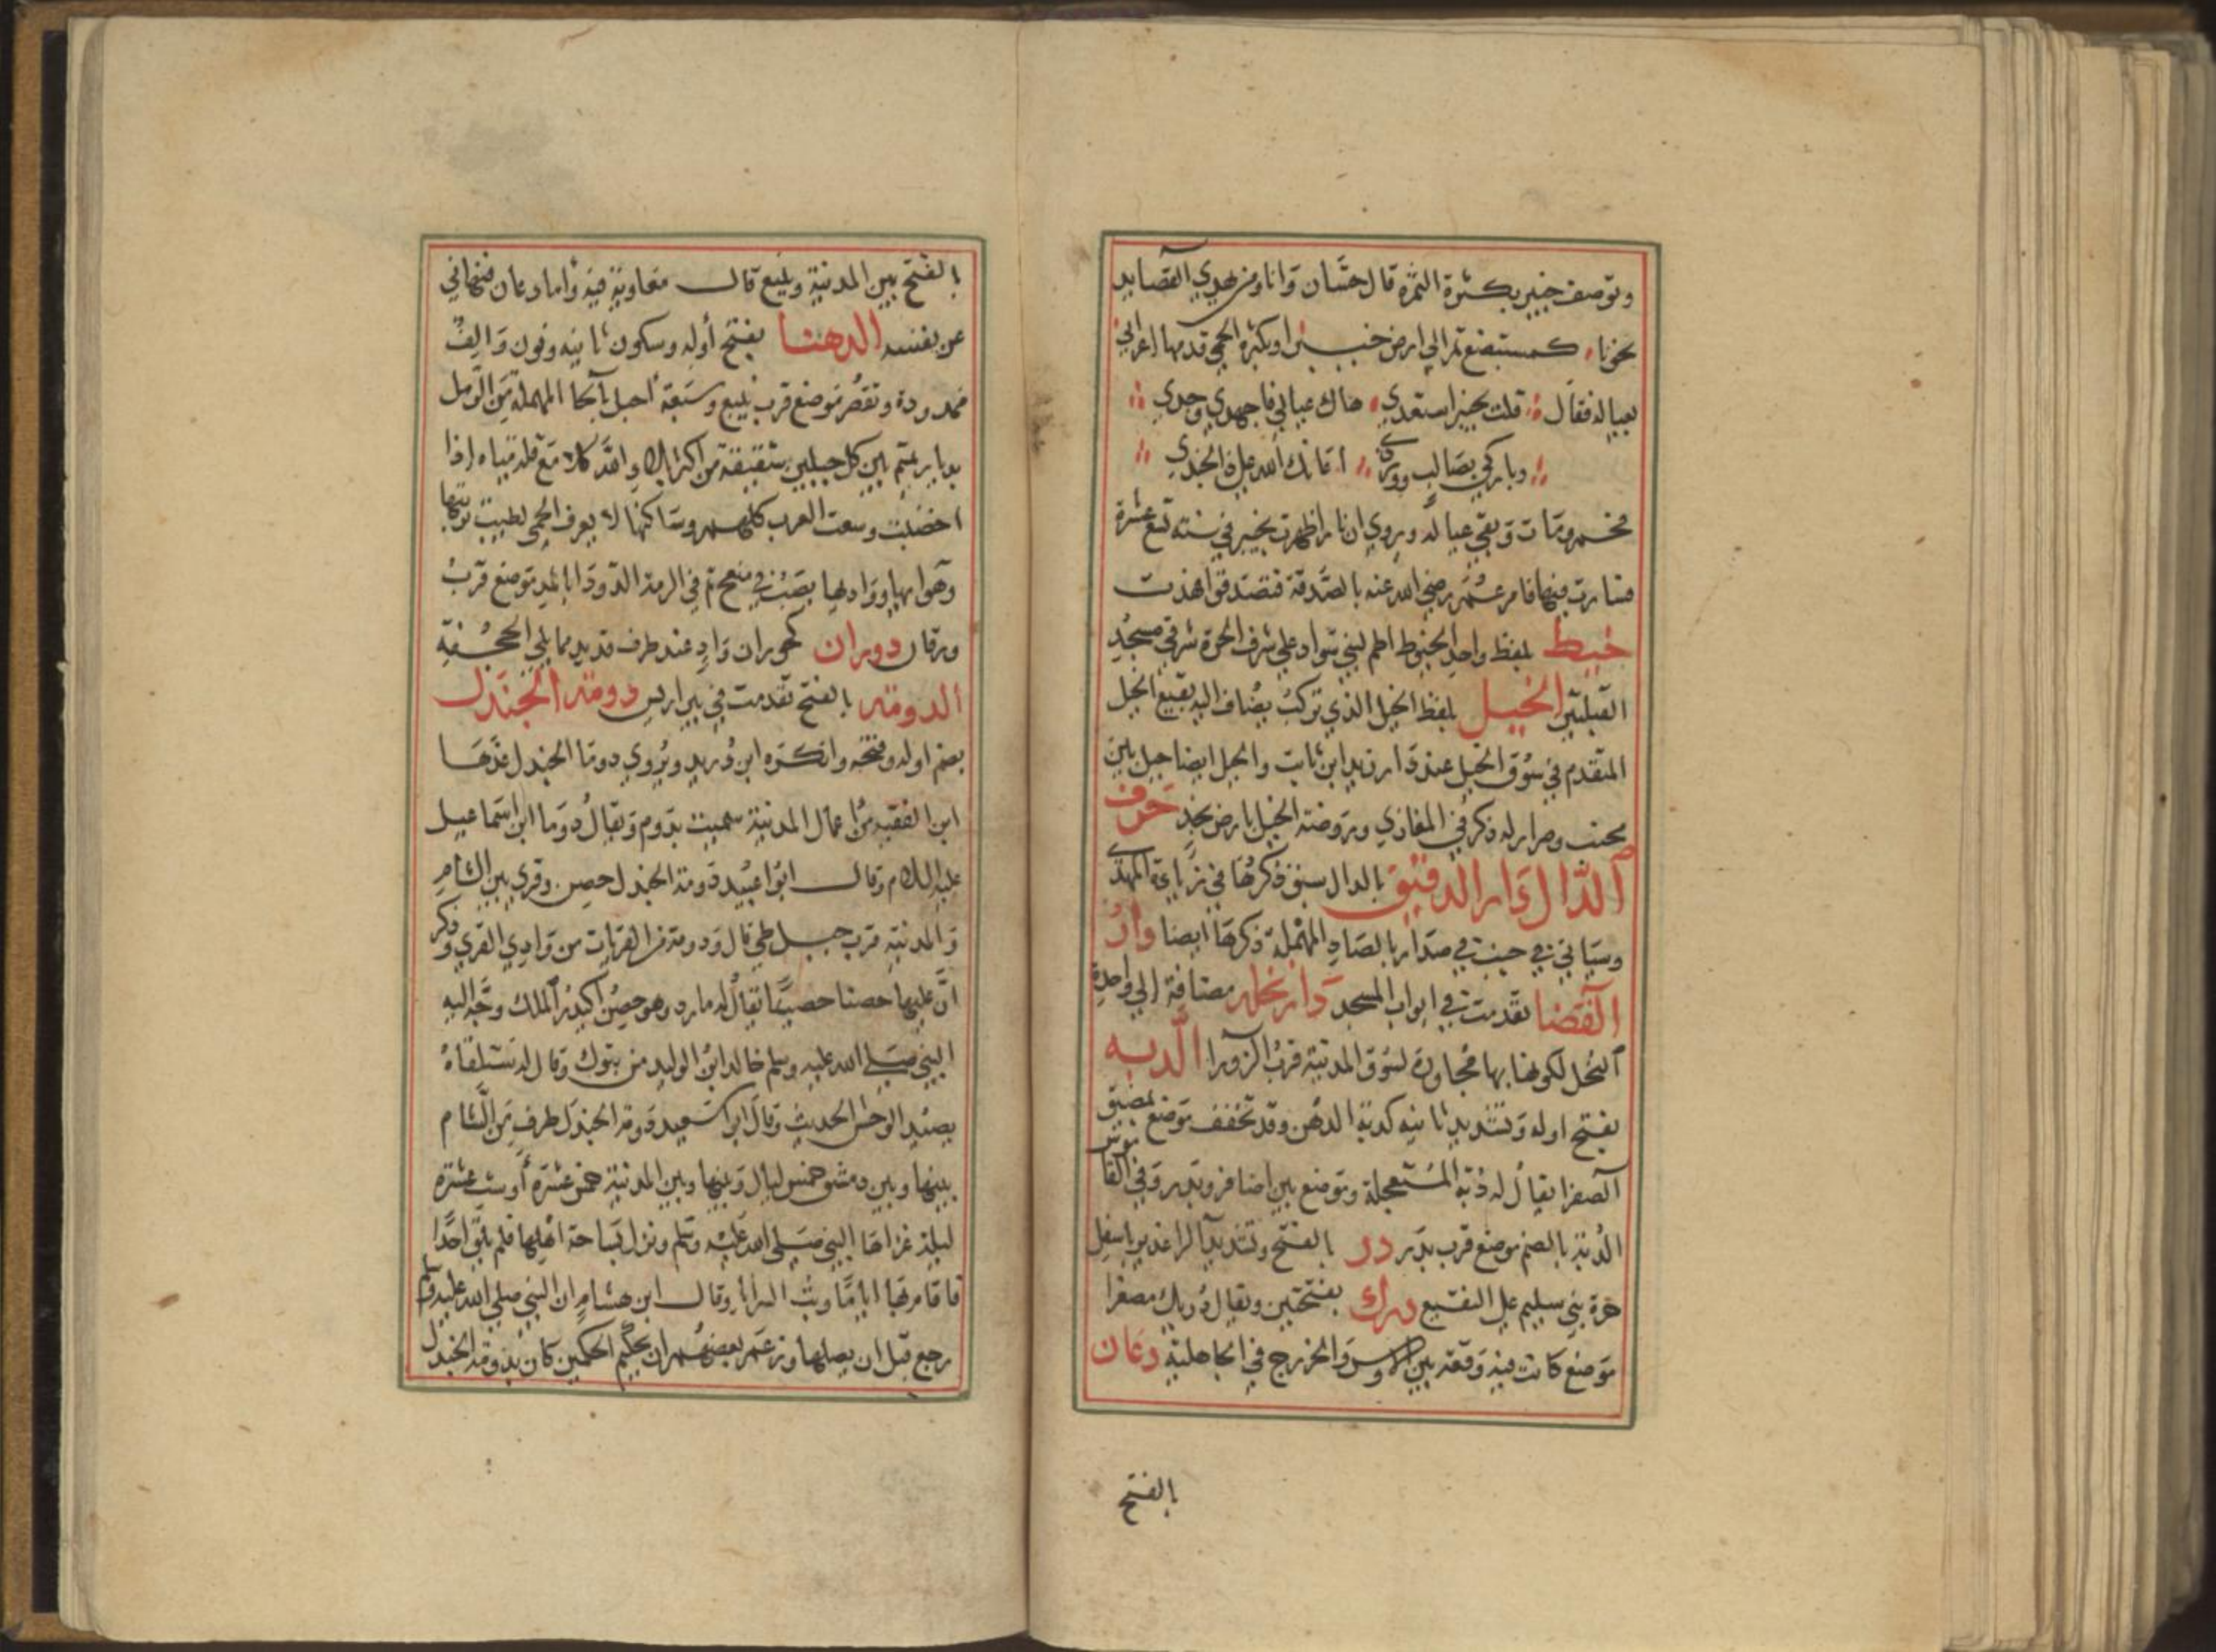 وتوصف خيبر بكثرة التمر قال حسان وانا ومن يهدي القصايد
نحونا كمستبضع تمرا الي ارض خيبرا وبكثرة الحمي قدمها اعرابي
بعياله فقال قلت لخيبر استعدي هاك عيالي فاجهدي وجدي
وباكري بصالب وورد اعانك الله علي ذا الجندي
فحم ومات وبقي عياله وروي ان نارا ظهرت بخيبر في سنة تسع عشرة
فسارت فيها فامر عمر رضي الله عنه بالصدقة فتصدقوا فهدت
خيط بلفظ واحد الخيوط اطم لبني سواد علي شرف الحرة شرقي مسجد
القبلتين الخيل بلفظ الخيل الذي تركب يضاف اليه بقيع الخيل
المتقدم في سوق الخيل عند دار زيد ابن ثابت والخيل ايضا جبل بين
مجنب وصرار له ذكر في المغازي وروضة الخيل بارض نجد حرف
الدال دار الدقيق بالدال سبق ذكرها في زيادة المهدي
وسياتي في حيث في صدار بالصاد المهملة ذكرها ايضا دار
القضا تقدمت في ابواب المسجد دار نخله مضافة الي واحدة
النخل لكونها بها مجاورة لسوق المدنية قرب الزورا الدبه
بفتح اوله وتشديد ثانيه كدبة الدهن وقد تخفف موضع بمضيق
الصفرا يقال له دبة المستعجلة وموضع بين اضافر وبدر وفي القاموس
الدبة بالضم موضع قرب بدر در بالفتح وتشديد الرا غدير باسفل
حرة بني سليم علي النقيع درك بفتحتين ويقال دريك مصغرا
موضع كانت فيه وقعة بين الاوس والخزرج في الجاهلية دعان
بالفتح
بالفتح بين المدنية وينبع قال معاوية فيه واما دعان فنهاني
عن نفسه الدهنا بفتح أوله وسكون ثانيه ونون والف
ممدودة وتقصر موضع قرب ينبع وسبعة احبل بالحا المهملة من الرمل
بديار تميم بين كل حبلين شقيقة من اكثر بلاد الله كلا مع قلة مياه اذا
اخضبت وسعت العرب كلهم وساكنها لا يعرف الحمي لطيب تربتها
وهوايها وواديها يصب في منعج ثم في الرمة الدودا بالمد موضع قرب
ورقان دوران كحوران واد عند طرف قديد مما يلي الجحفة
الدومة بالفتح تقدمت في بير اريس دومة الجندل
بضم اوله وفتحه وانكره ابن دريد ويروي دوما الجندل عدها
ابن الفقيه من اعمال المدنية سميت بدوم ويقال دوما ابن اسماعيل
عليه السلام وقال ابوا عبيد دومة الجندل حصن وقري بين الشام
والمدنية قرب جبل طي قال ودومة من القريات من وادي القري وذكر
ان عليها حصنا حصينا يقال له مارد وهو حصن اكيدر الملك وجه اليه
النبي صلي الله عليه وسلم خالد ابن الوليد من تبوك وقال له ستلقاه
يصيد الوحش الحديث وقال ابوا سعيد دومة الجندل طرف من الشام
بينها وبين دمشق خمس ليال وبينها وبين المدنية خمس عشرة أو ست عشرة
ليلة غزاها النبي صلي الله عليه وسلم ونزل بساحة اهلها فلم يلق احدا
فاقام بها اياما وبث السرايا وقال ابن هشام ان النبي صلي الله عليه وسلم
رجع قبل ان يصلها وزعم بعضهم ان تحكيم الحكمين كان بدومة الجندل